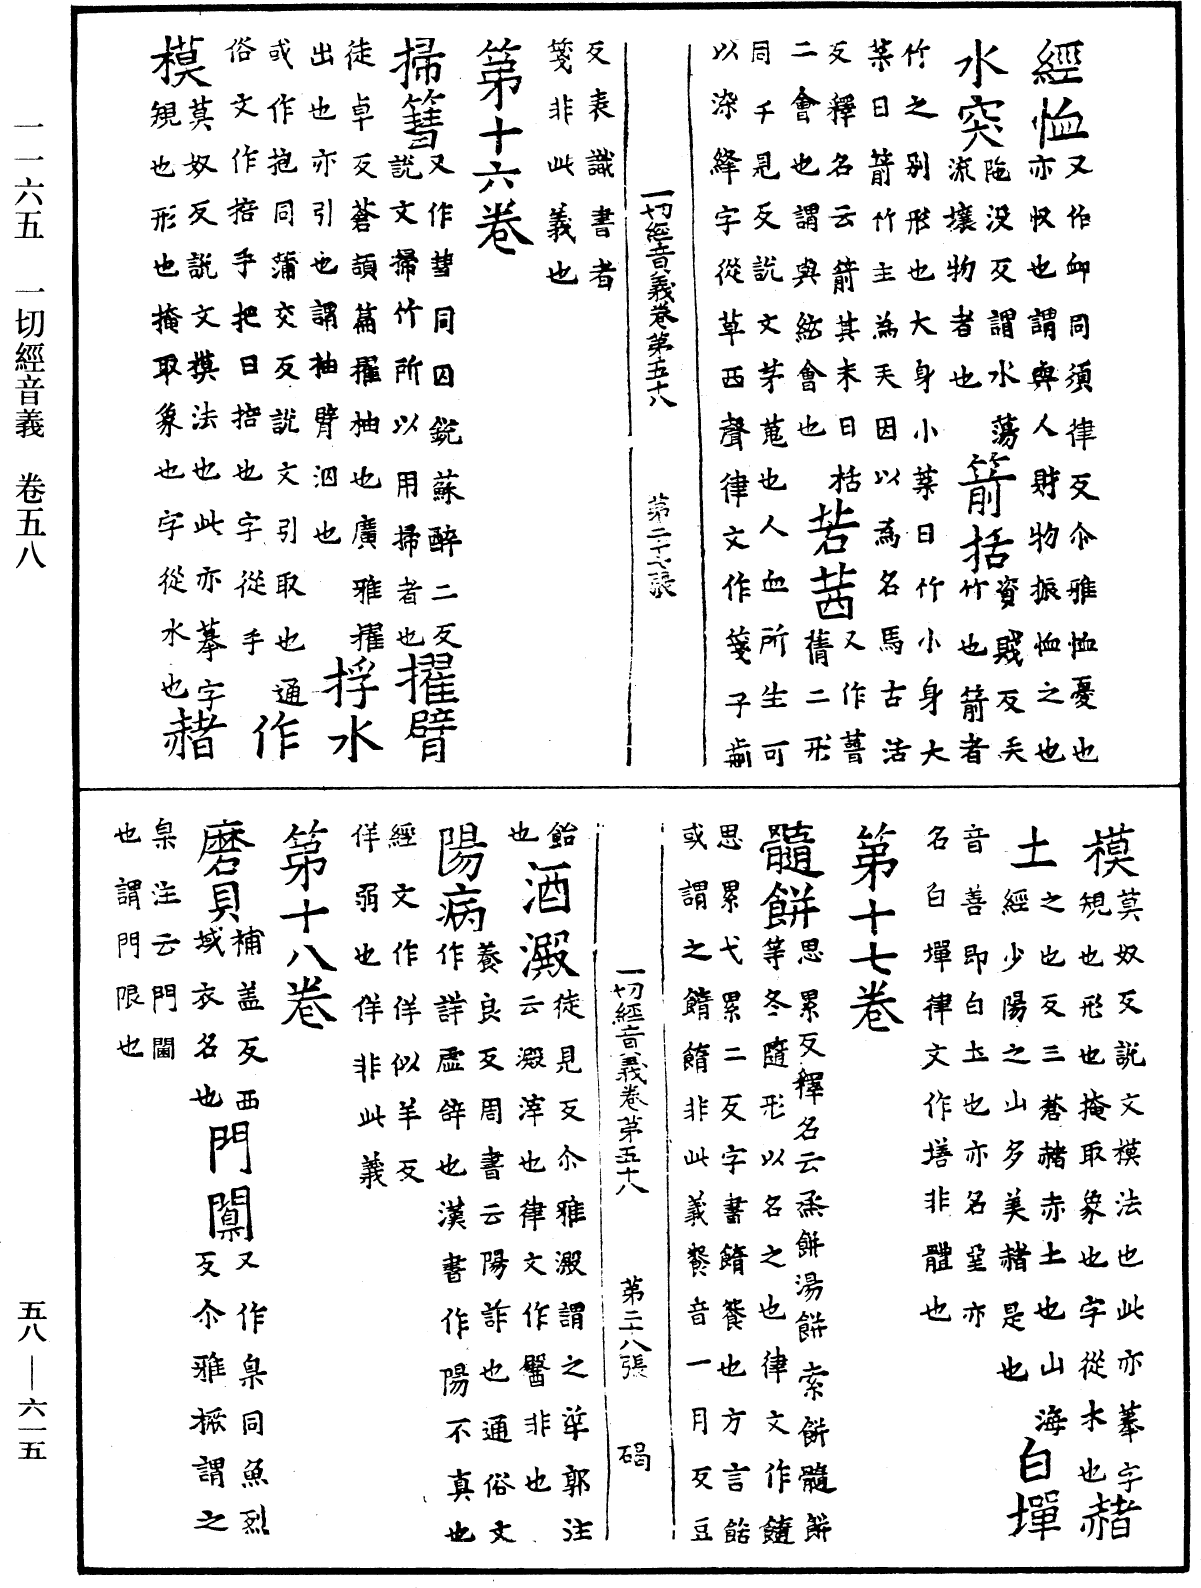 經恤又作卹同須律反尒雅恤憂也亦収也謂與人財物振恤之也
水突陁没反謂水蕩流壞物者也
箭括資賤反矢竹也箭者竹之别形也大身小葉曰竹小身大
葉曰箭竹主為矢因以為名馬古活
反釋名云箭其末曰栝
二會也謂與絃會也
若茜又作蒨蒨二形
同千見反說文茅蒐也人血所生可
以染絳字從草西聲律文作箋子前
一切經音義卷第五十八 第二十七張
反表識書者
箋非此義也
第十六卷
掃篲又作彗同囚銳蘇醉二反說文掃竹所以用掃者也
擢臂徒卓反蒼頡篇擢抽也廣雅擢
出也亦引也謂抽臂汨也
捊水或作抱同蒲交反說文引取也通
俗文作掊手把曰掊也字從手
作模莫奴反說文模法也此亦摹字規也形也掩取象也字從水也
赭
模莫奴反說文模法也此亦摹字規也形也掩取象也字從木也
赭土之也反三蒼赭赤土也山海經少陽之山多美赭是也
白墠音善即白土也亦名堊亦
名白墠律文作墡非體也
第十七卷
髓餅思累反釋名云烝餅湯餅索餅髓餅等各隨形以名之也律文作饚
思累弋累二反字書餚餥也方言餂
或謂之餚餚非此義餥音一月反豆
一切經音義卷第五十八 第二十八張 碣
飴也
酒澱徒見反尒雅澱謂之垽郭注云澱滓也律文作醫非也
陽病養良反周書云陽詐也通俗文作詳虛辝也漢書作陽不真也
經文作佯似羊反
佯弱也佯非此義
第十八卷
磨貝補盖反西域衣名也
門闑又作臬同魚烈反尒雅橛謂之
臬注云門閫
也謂門限也
一一六五 一切經音義 卷五八
五八—六一五